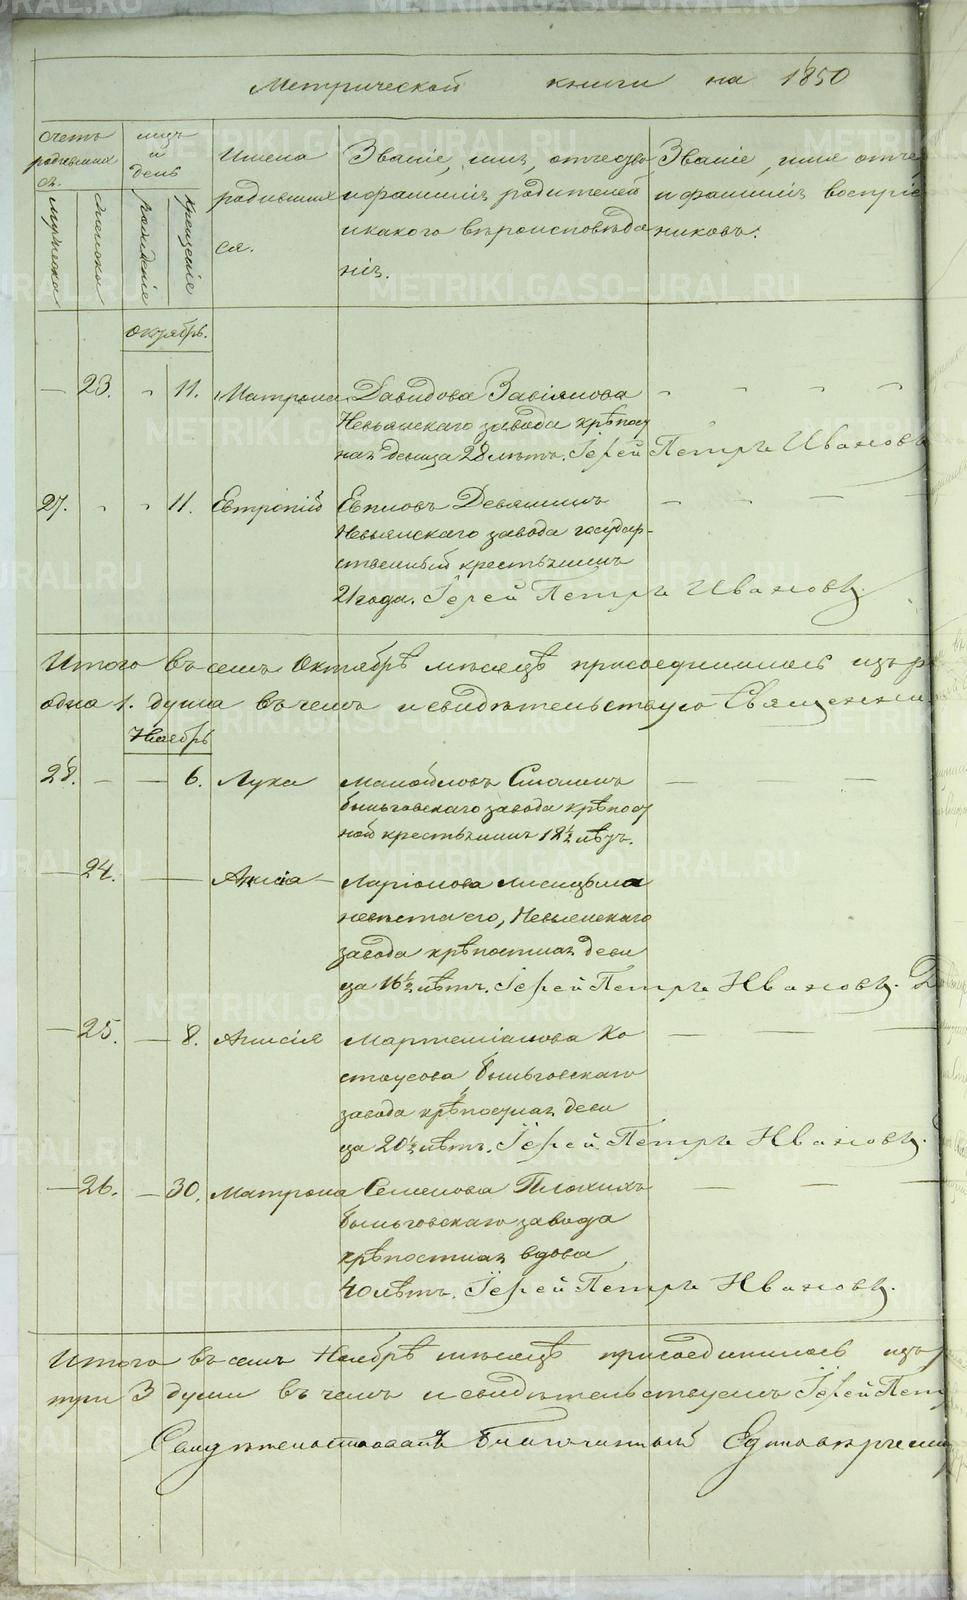 Метрической книги на 1850
Счетъ родившихся.
мужеска
женска
мѣц и день
рожденіе
крещеніе
Имена родившихся.
Званіе, имя, отчество и фамилія родителей и какого вѣроисповѣданія.
Званіе, имя отче
и фамилія воспріе
никовъ.
Октябрь.
— 23. 11. Матрона Давидова Завіялова
Невьянскаго завода крѣпост
ная девица 28 лѣтъ. Іерей Петръ Ивановъ
27. 11. Евтропій Евпловъ Девяшинъ
Невьянскаго завода государ-
ственный крестьянинъ
21 года. Іерей Петръ Ивановъ.
Итого въ семъ Октябрѣ мѣсяцѣ присоединилось изъ р
одна 1. душа въ чемъ и свидѣтельствую Священни
Ноябрь
28. — — 6. Лука Мануйловъ
быньговскаго завода крѣпост
ной крестьянинъ 18½ лѣтъ.
— 24. — Анисія — Ларіонова
невѣста его, Невьянскаго
завода крѣпостная деви
ца 16½ лѣтъ. Іерей Петръ Ивановъ.
— 25. — 8. Анисія Мартеміанова Ко
стоусова быньговскаго
завода крѣпостная деви
ца 20½ лѣтъ. Іерей Петръ Ивановъ.
— 26. — 30. Матрона Семенова Плохихъ
быньговскаго завода
крѣпостная вдова
40 лѣтъ. Іерей Петръ Ивановъ.
Итого въ семъ Ноябрѣ мѣсяцѣ присоединилось изъ
три 3 души въ чемъ и свидѣтельствуемъ Іерей Пет
Свидѣтельствовалъ Благочинный Единовѣрчески
METRIKI.GASO-URAL.RU